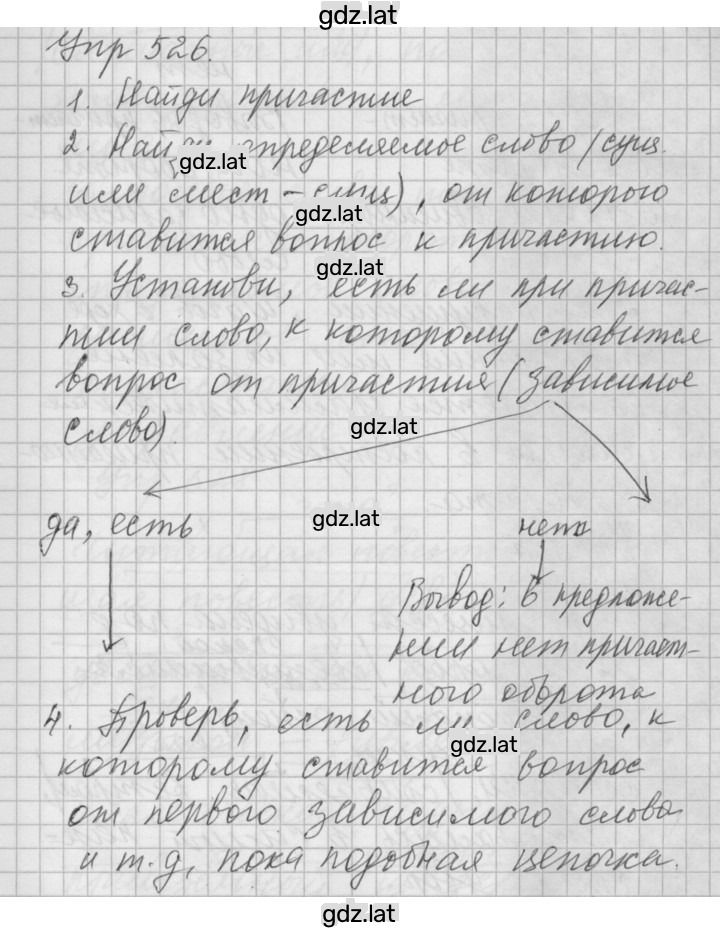 gdz.lat
Упр 526.
1. Найди причастие
2. Найди определяемое слово (сущ.
gdz.lat
или мест-сущ), от которого
gdz.lat
ставится вопрос к причастию.
gdz.lat
3. Установи, есть ли при причас-
тии слово, к которому ставится
вопрос от причастия (зависимое
слово).
gdz.lat
да, есть
gdz.lat
нет
Вывод: в предложе-
нии нет причаст-
ного оборота
4. Проверь, есть ли слово, к
gdz.lat
которому ставится вопрос
от первого зависимого слова
и т.д, пока подобная цепочка.
gdz.lat